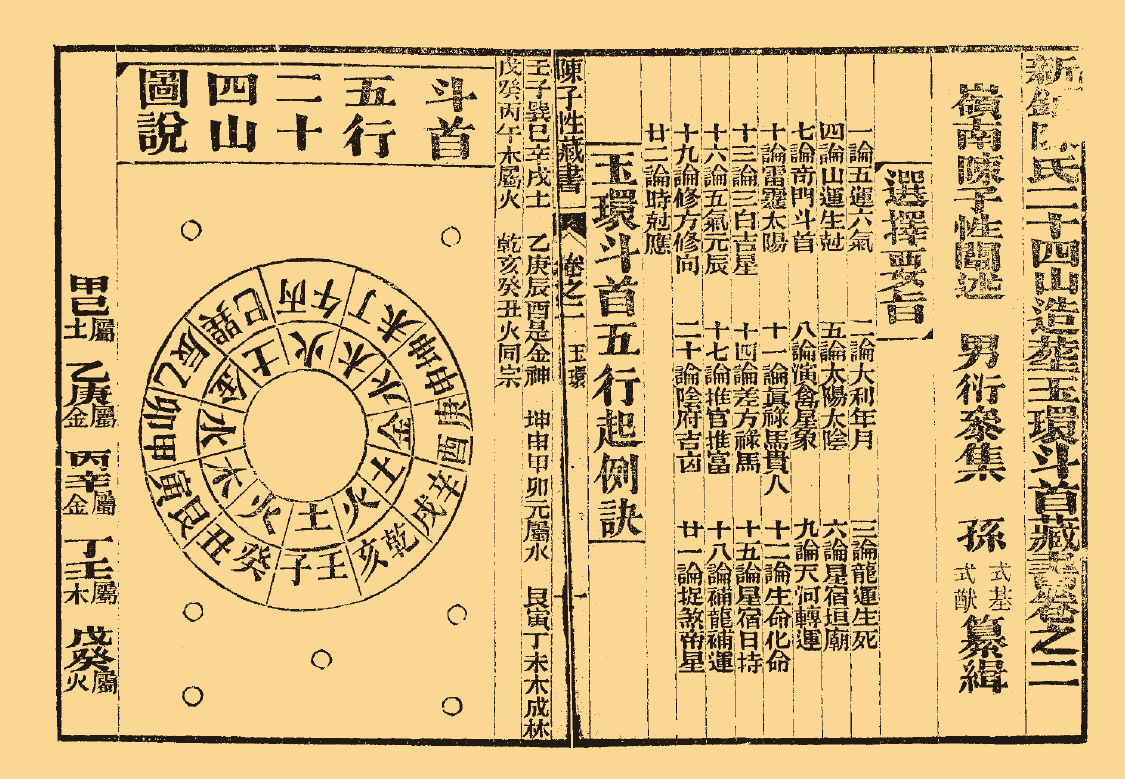 新鐫陳氏二十四山造葬玉環斗首藏書卷之二
嶺南陳子性闇述 男衍泰集 孫式基式猷纂緝
選擇要旨
一論五運六氣 二論大利年月 三論龍運生死
四論山運生尅 五論太陽太陰 六論星宿垣廟
七論奇門斗首 八論演禽星象 九論天河轉運
十論雷霆太陽 十一論眞祿馬貴人 十二論生命化命
十三論三白吉星 十四論差方祿馬 十五論星宿日持
十六論五氣元辰 十七論推官推富 十八論補龍補運
十九論修方修向 二十論陰府吉凶 廿一論捉煞帝星
廿二論時尅應
玉環斗首五行起例訣
陳子性藏書 卷之二 玉環 一
壬子巽巳辛戌土 乙庚辰酉是金神 坤申甲卯元屬水 艮寅丁未木成林
戊癸丙午木屬火 乾亥癸丑火同宗
斗首
五行
二十
四山
圖說
午丙 巳巽 辰乙 卯甲 寅艮 丑癸 子壬 亥乾 戌辛 酉庚 申坤 未丁
火 土 金 水 木 火 土 火 土 金 水 木
甲己屬土 乙庚屬金 丙辛屬金 丁壬屬木 戊癸屬火